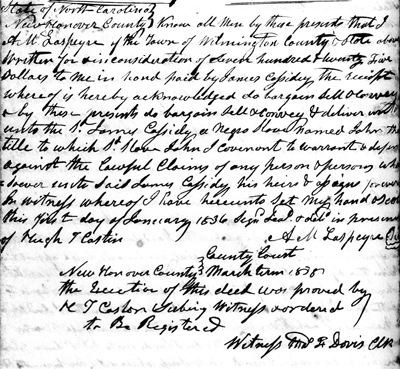 State of North Carolina
New Hanover County Know all Men by these presents that I
A M Laspeyre of the Town of Wilmington County & State above
Written for & in consideration of Seven hundred & twenty Five
Dollars to me in hand paid by James Cassidey the receipt
where of is hereby acknowledged do bargain Sell & Convey
& by these presents do bargain Sell & Convey & deliver
unto the Sd. James Cassidey a Negro Slave Named John the
title to which Sd. Slave John I Covenant to warrant & defend
against the Lawful Claims of any person & persons who
soever unto Said James Cassidey his heirs & assigns forever
In witness whereof I have hereunto Set My hand & Seal
this first day of January 1836 Signd Seal. & Deld. in presence
of Hugh T Castin
A M Laspeyre
County Court
New Hanover County March term 1838
the Execution of this deed was proved by
H T Caston Subscribing Witness & ordered
to Be Registered
Witness Thos F Davis Clk